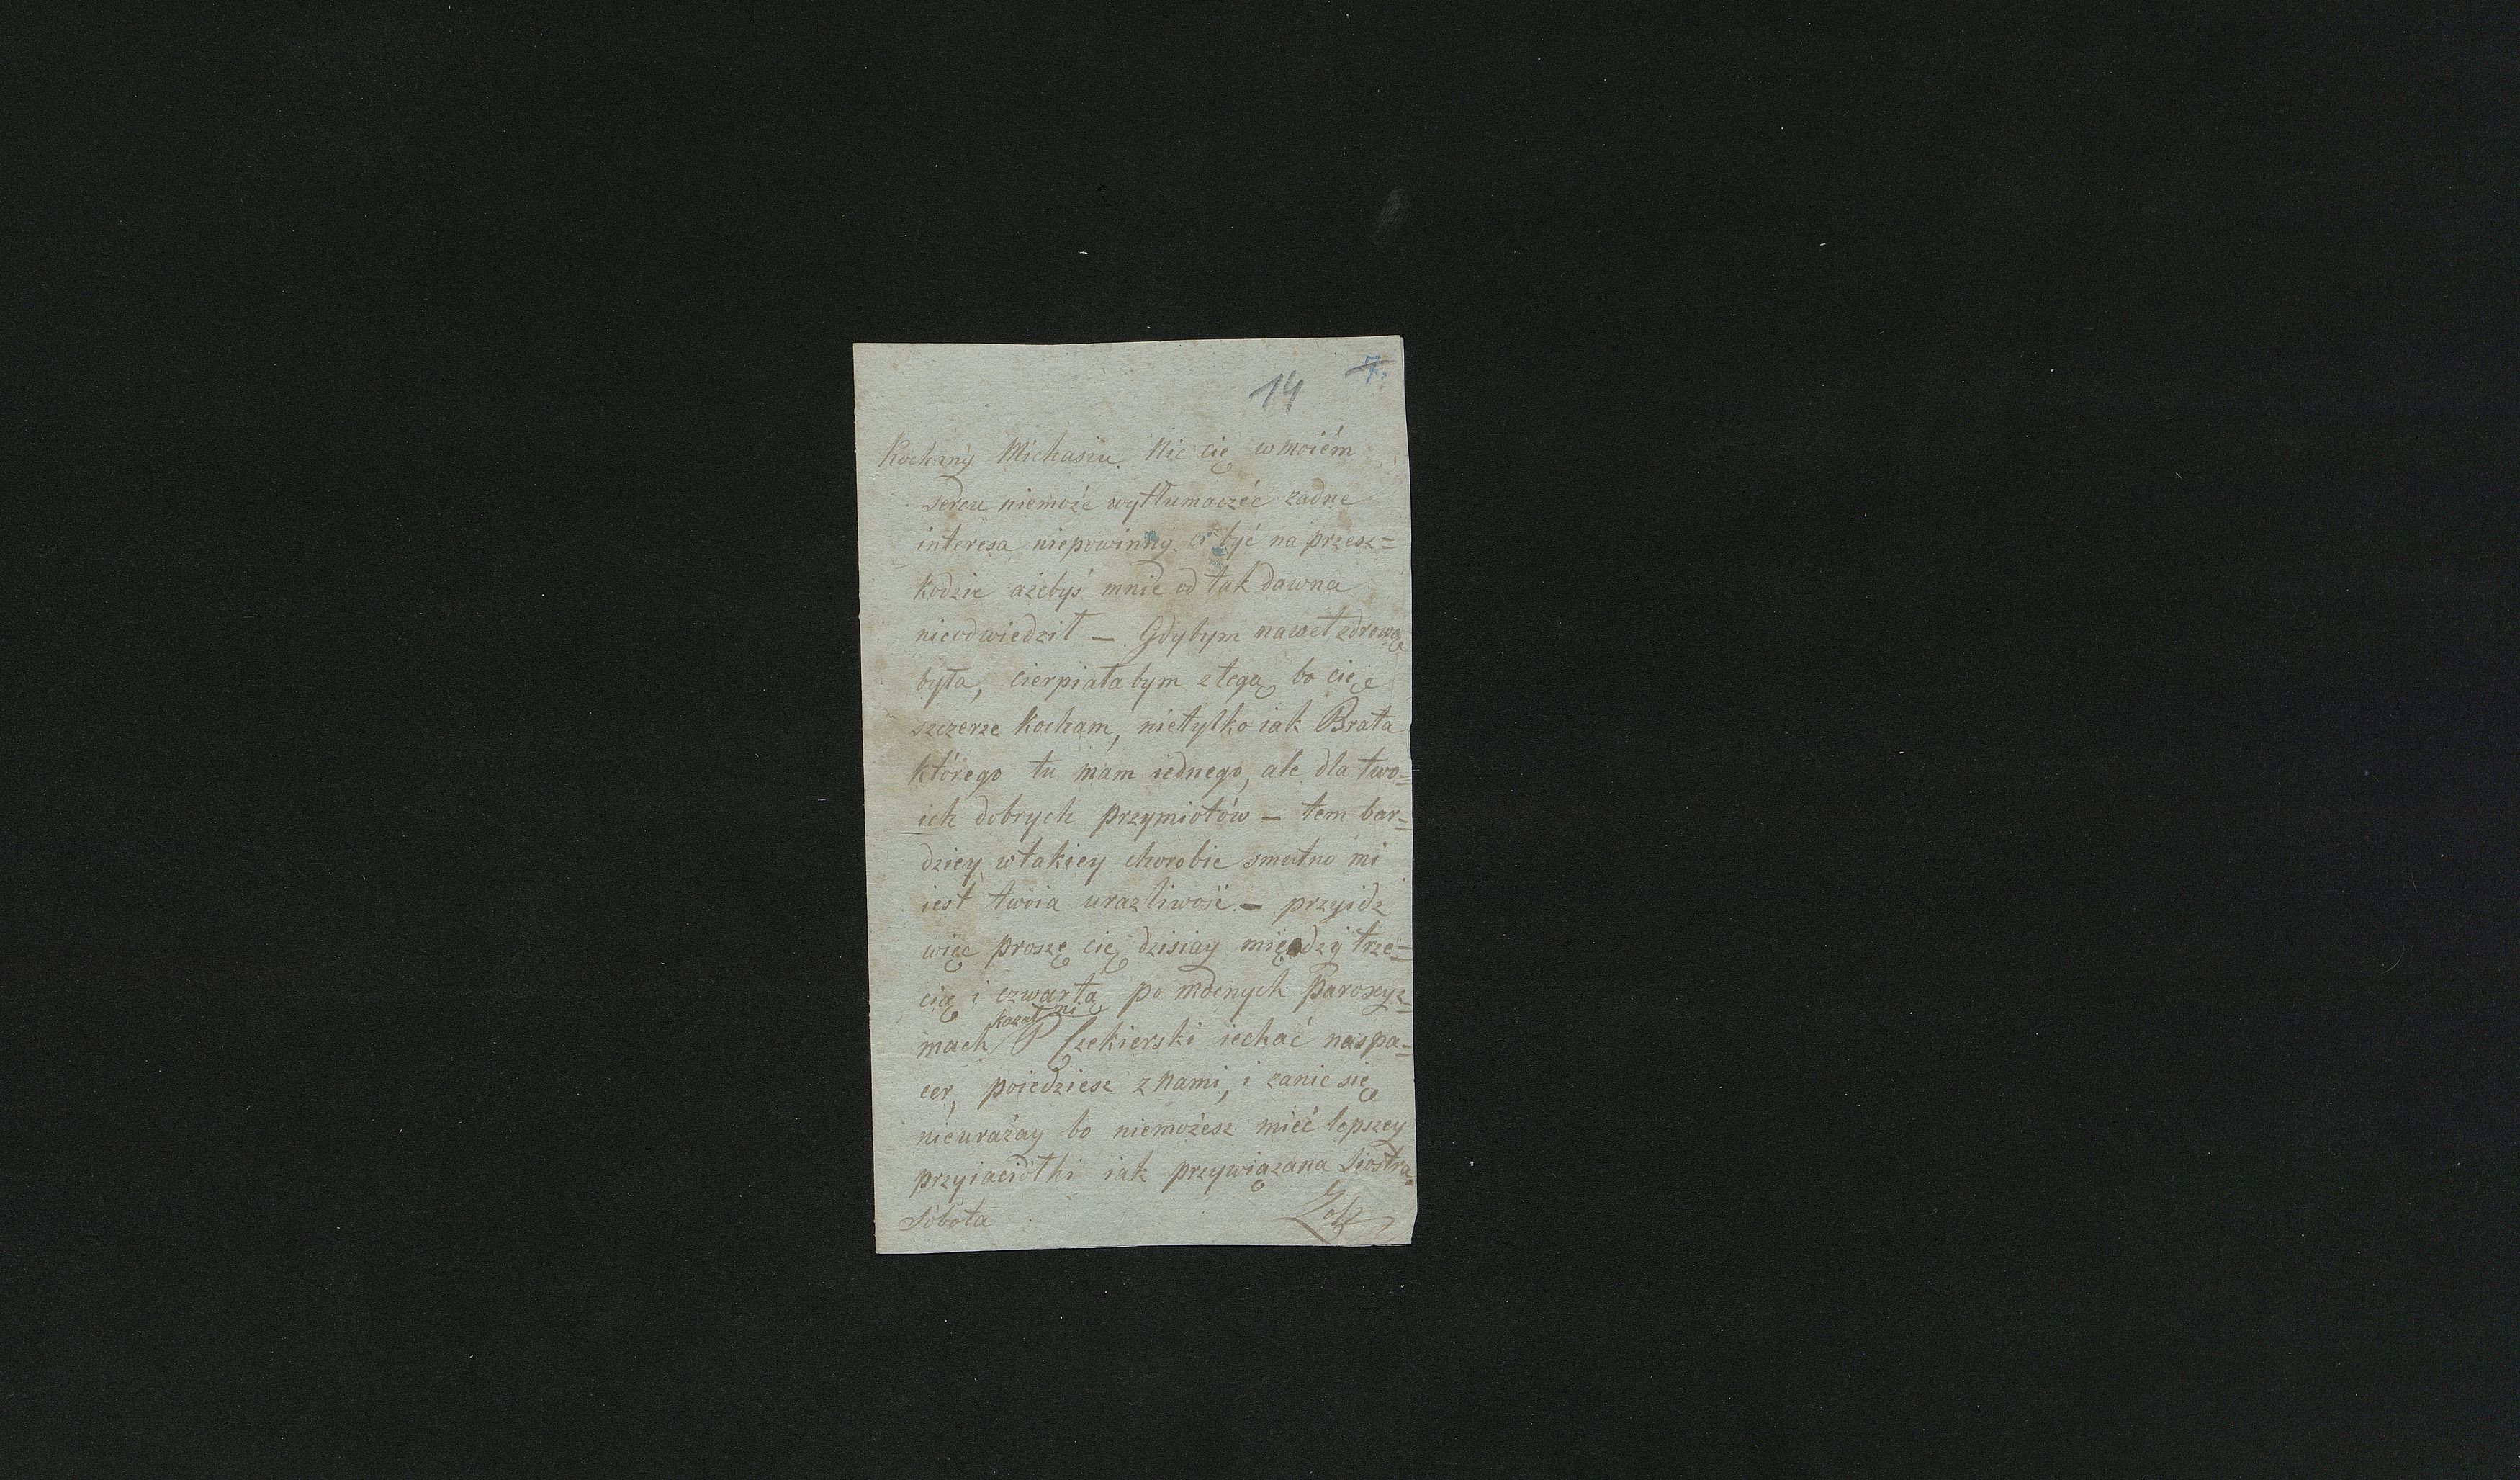 7.
14
Kochany Michasiu. Nic cię w moiém
sercu niemoże wytłumaczéć żadne
interesa niepowinny ci być na przesz=
kodzie ażebyś mnie od tak dawna
nieodwiedził — Gdybym nawet zdrową
była, cierpiałabym z tego, bo cię
szczerze kocham, nietylko iak Brata
którego tu mam iednego, ale dla two=
ich dobrych przymiotów — tem bar=
dziey w takiey chorobie smutno mi
iest twoia urazliwość. — przyidz
więc proszę cię dzisiay między trze=
cią i czwartą po mocnych paroxyz=
kazał mi
mach P Czekierski iechać naspa=
cer, poiedziesz z nami, i zanic się
nieurażay bo niemożesz mieć lepszey
przyiaciółki iak przywiązana Siostra.
Sobota